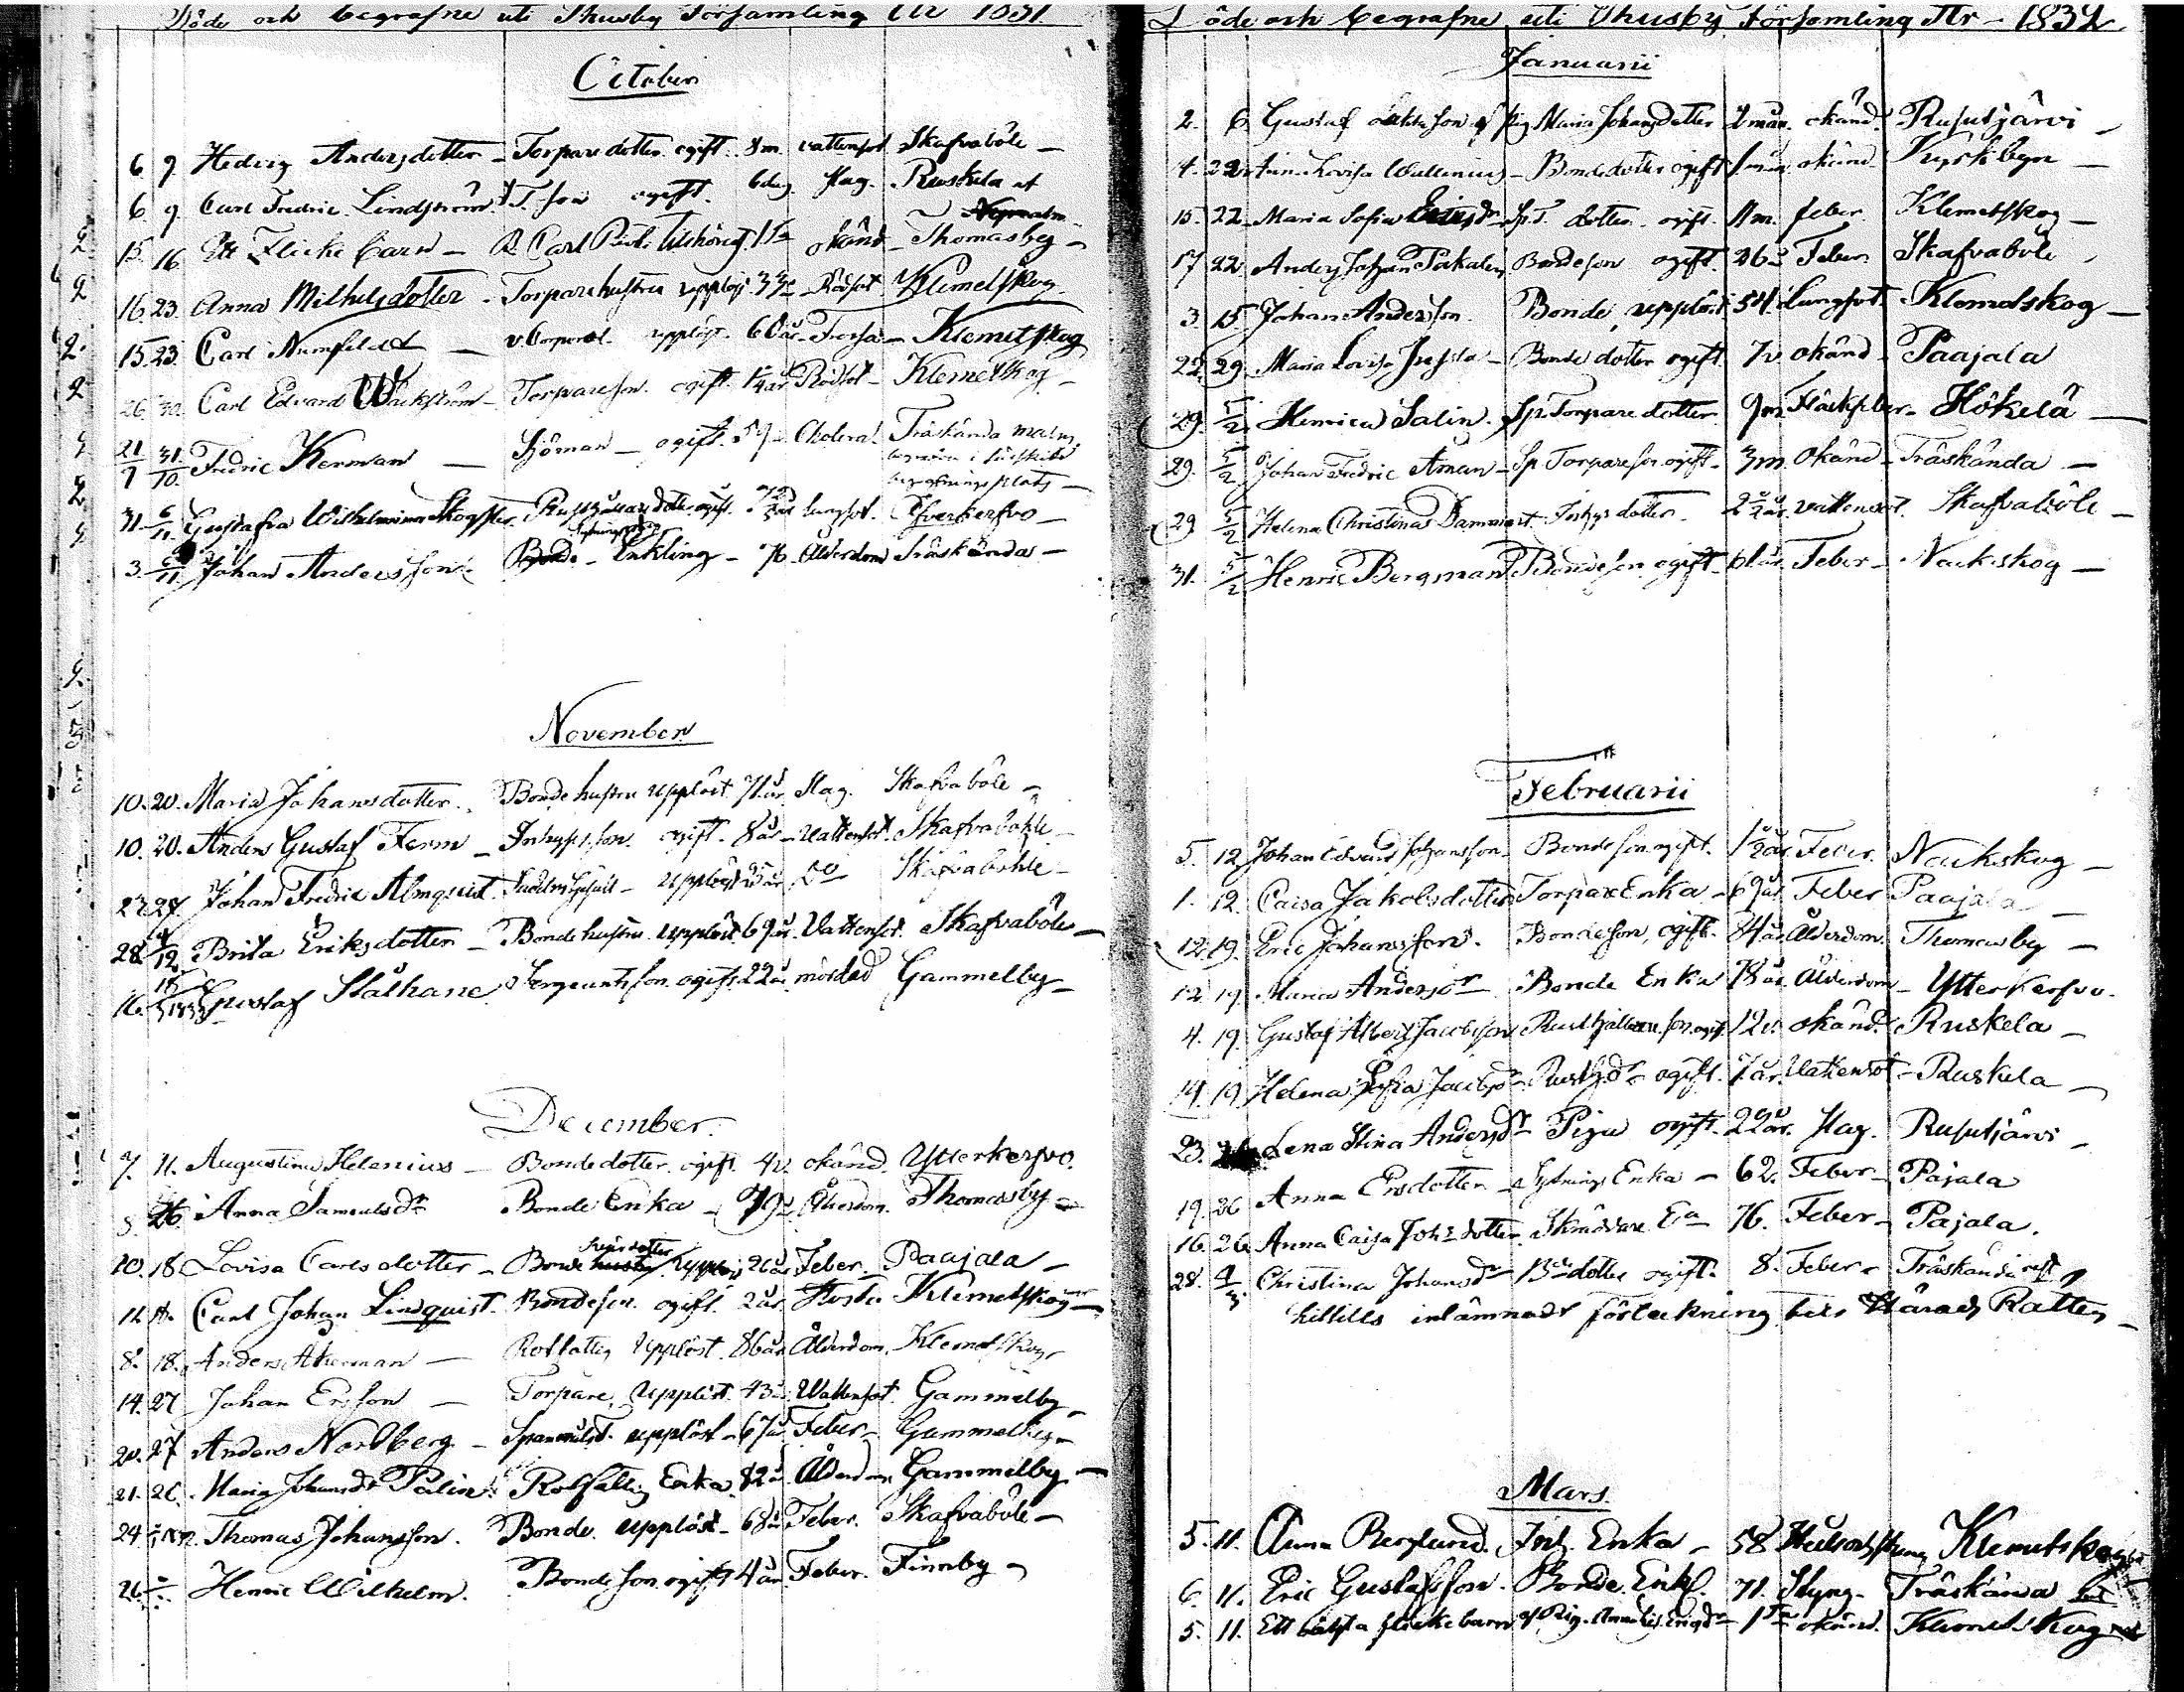 Döde och begrafne uti Thusby Församling År 1831
October
6 9 Hedvig Andersdotter - Torparedotter ogift. 8 m. vattensot Skafvaböle -
6. 9. Carl Fredric Lindström. T. son ogift. 6 dag. slag. Ruskela
15. 16. Ett Flicke barn - Carl okänd - Thomasby -
16. 23. Anna Mickelsdotter - Torparehustru upplöst Rödsot Klemetskog
15. 23. Carl - v. Corporal upplöst. 60 år - Klemetskog
26. 30. Carl Edvard Wäckström - Torpareson. ogift. 1/4 år Rödsot - Klemetskog -
21/9 31/10. Fredric Kerman - Sjöman - ogift. Cholera. Träskända malm,
begrafningsplats -
31. 6/11 Gustafva Wilhelmina ogift. lungsot.
3. 6/11 Johan Andersson Enkling - 76. Ålderdom Träskända -
November
10. 20. Maria Johansdotter. Bondehustru upplöst 71 år Slag. Skafvaböle -
10. 20. Anders Gustaf Ferm - Inhyses son. ogift. 8 år - Vattensot. Skafvabohle -
27. Johan Fredric Almquist. upplöst do Skafvabohle -
28. 4/12 Brita Eriksdotter - Bondehustru upplöst 69 år. Vattensot. Skafvaböle -
16. Gustaf Stålhane Sergeantsson ogift 22 år mördad Gammelby -
December.
7. 11. Augustina Helenius - Bondedotter. ogift. 4 v. okänd. Ytterkerfvo.
8. 26. Anna Samuelsdr Bonde Enka - 79 Ålderdom. Thomasby -
10. 18 Lovisa Carlsdotter - Bonde 26 år Feber. Paajala -
Carl Johan Lindquist. Bondeson. ogift. 2 år Hosta Klemetskog -
8. 18. Anders Åkerman - Rotfattig Upplöst. 86 år Ålderdom. Klemetskog
14. 27 Johan Ersson - Torpare, Upplöst. 43 Wattensot. Gammelby -
20. 27 Anders Nordberg. - upplöst - 67 år Feber - Gammelby -
21. 26. Maria Johansdr Palin. Rotfattig Enka. 82 Ålderdom. Gammelby -
24 Thomas Johansson. Bonde. upplöst - 68 år Feber. Skafvaböle -
26. Henric Wilhelm. Bondeson ogift 4 år Feber. Finnby -
Döde och begrafne uti Thusby Församling År - 1832
Januarii
2. 6 Gustaf oäkta son af Pig Maria Johansdotter 2 mån. okänd. Rusutjärvi -
4. 22 Ann. Lovisa Wallenius - Bondedotter ogift 1 mån okänd Kyrkbyn -
15. 22 Maria Sofia Ericsdr Sp. T. dotter. ogift. 11 m. feber. Klemetskog -
17 22 Anders Johan Pakalen Bondeson ogift. 26 Feber. Skafvaböle
3. 15. Johan Andersson. Bonde, upplöst 54. Lungsot. Klemetskog -
22. 29. Maria Lovisa - Bondedotter ogift 7 v okänd - Paajala
29. 5/2 Henrica Salin. Sp. Torparedotter. 9 m. Fläckfeber - Hökelä -
29. 5/2 Johan Fredric Åman - Sp Torpareson ogift - 3 m. okänd - Träskända -
29. 5/2 Helena Christina Dammert. Inhys dotter. 2 1/2 år. vattensot. Skafvaböle -
31. 5/2 Henric Bergman Bondeson ogift - år Feber - Nackskog -
Februarii
5. 12 Johan Edvard Johansson - Bondeson ogift. 1 1/2 år Feber. Nackskog -
1. 12. Caisa Jakobsdotter Torpare Enka - 69 år Feber Paajala -
12. 19. Eric Johansson. Bondeson, ogift. Ålderdom. Thomasby -
12. 19. Maria Andersdr Bonde Enka 78 år Ålderdom - Ytterkerfvo.
4. 19. Gustaf Albert Jacobsson Rusthållare son. ogift. 12 okänd. Ruskela -
14. 19 Helena Sofia Jacobsdr - Rusthdr - ogift. 7 år. Vattensot - Ruskela -
23. 26 Lena Stina Andersdr - Piga ogift. 22 år. slag. Rusutjärvi -
19. 26 Anna Ersdotter - Sytnings Enka - 62. Feber - Pajala
16. 26. Anna Caisa Johsdotter. Skräddare Ea 76. Feber - Pajala.
28. 4/3. Christina Johansdr - Bdedotter ogift. 8. Feber - Träskända
hittills inlämnadt förteckning till Härads Rätten -
Mars.
5. 11. Anna Berglund. Inh. Enka - 58 Klemetskog
6. 11. Eric Gustafsson. Bonde Enkl. 71. Styng - Träskända
5. 11. Ett oäkta flickebarn af Pig. okänd. Klemetskog